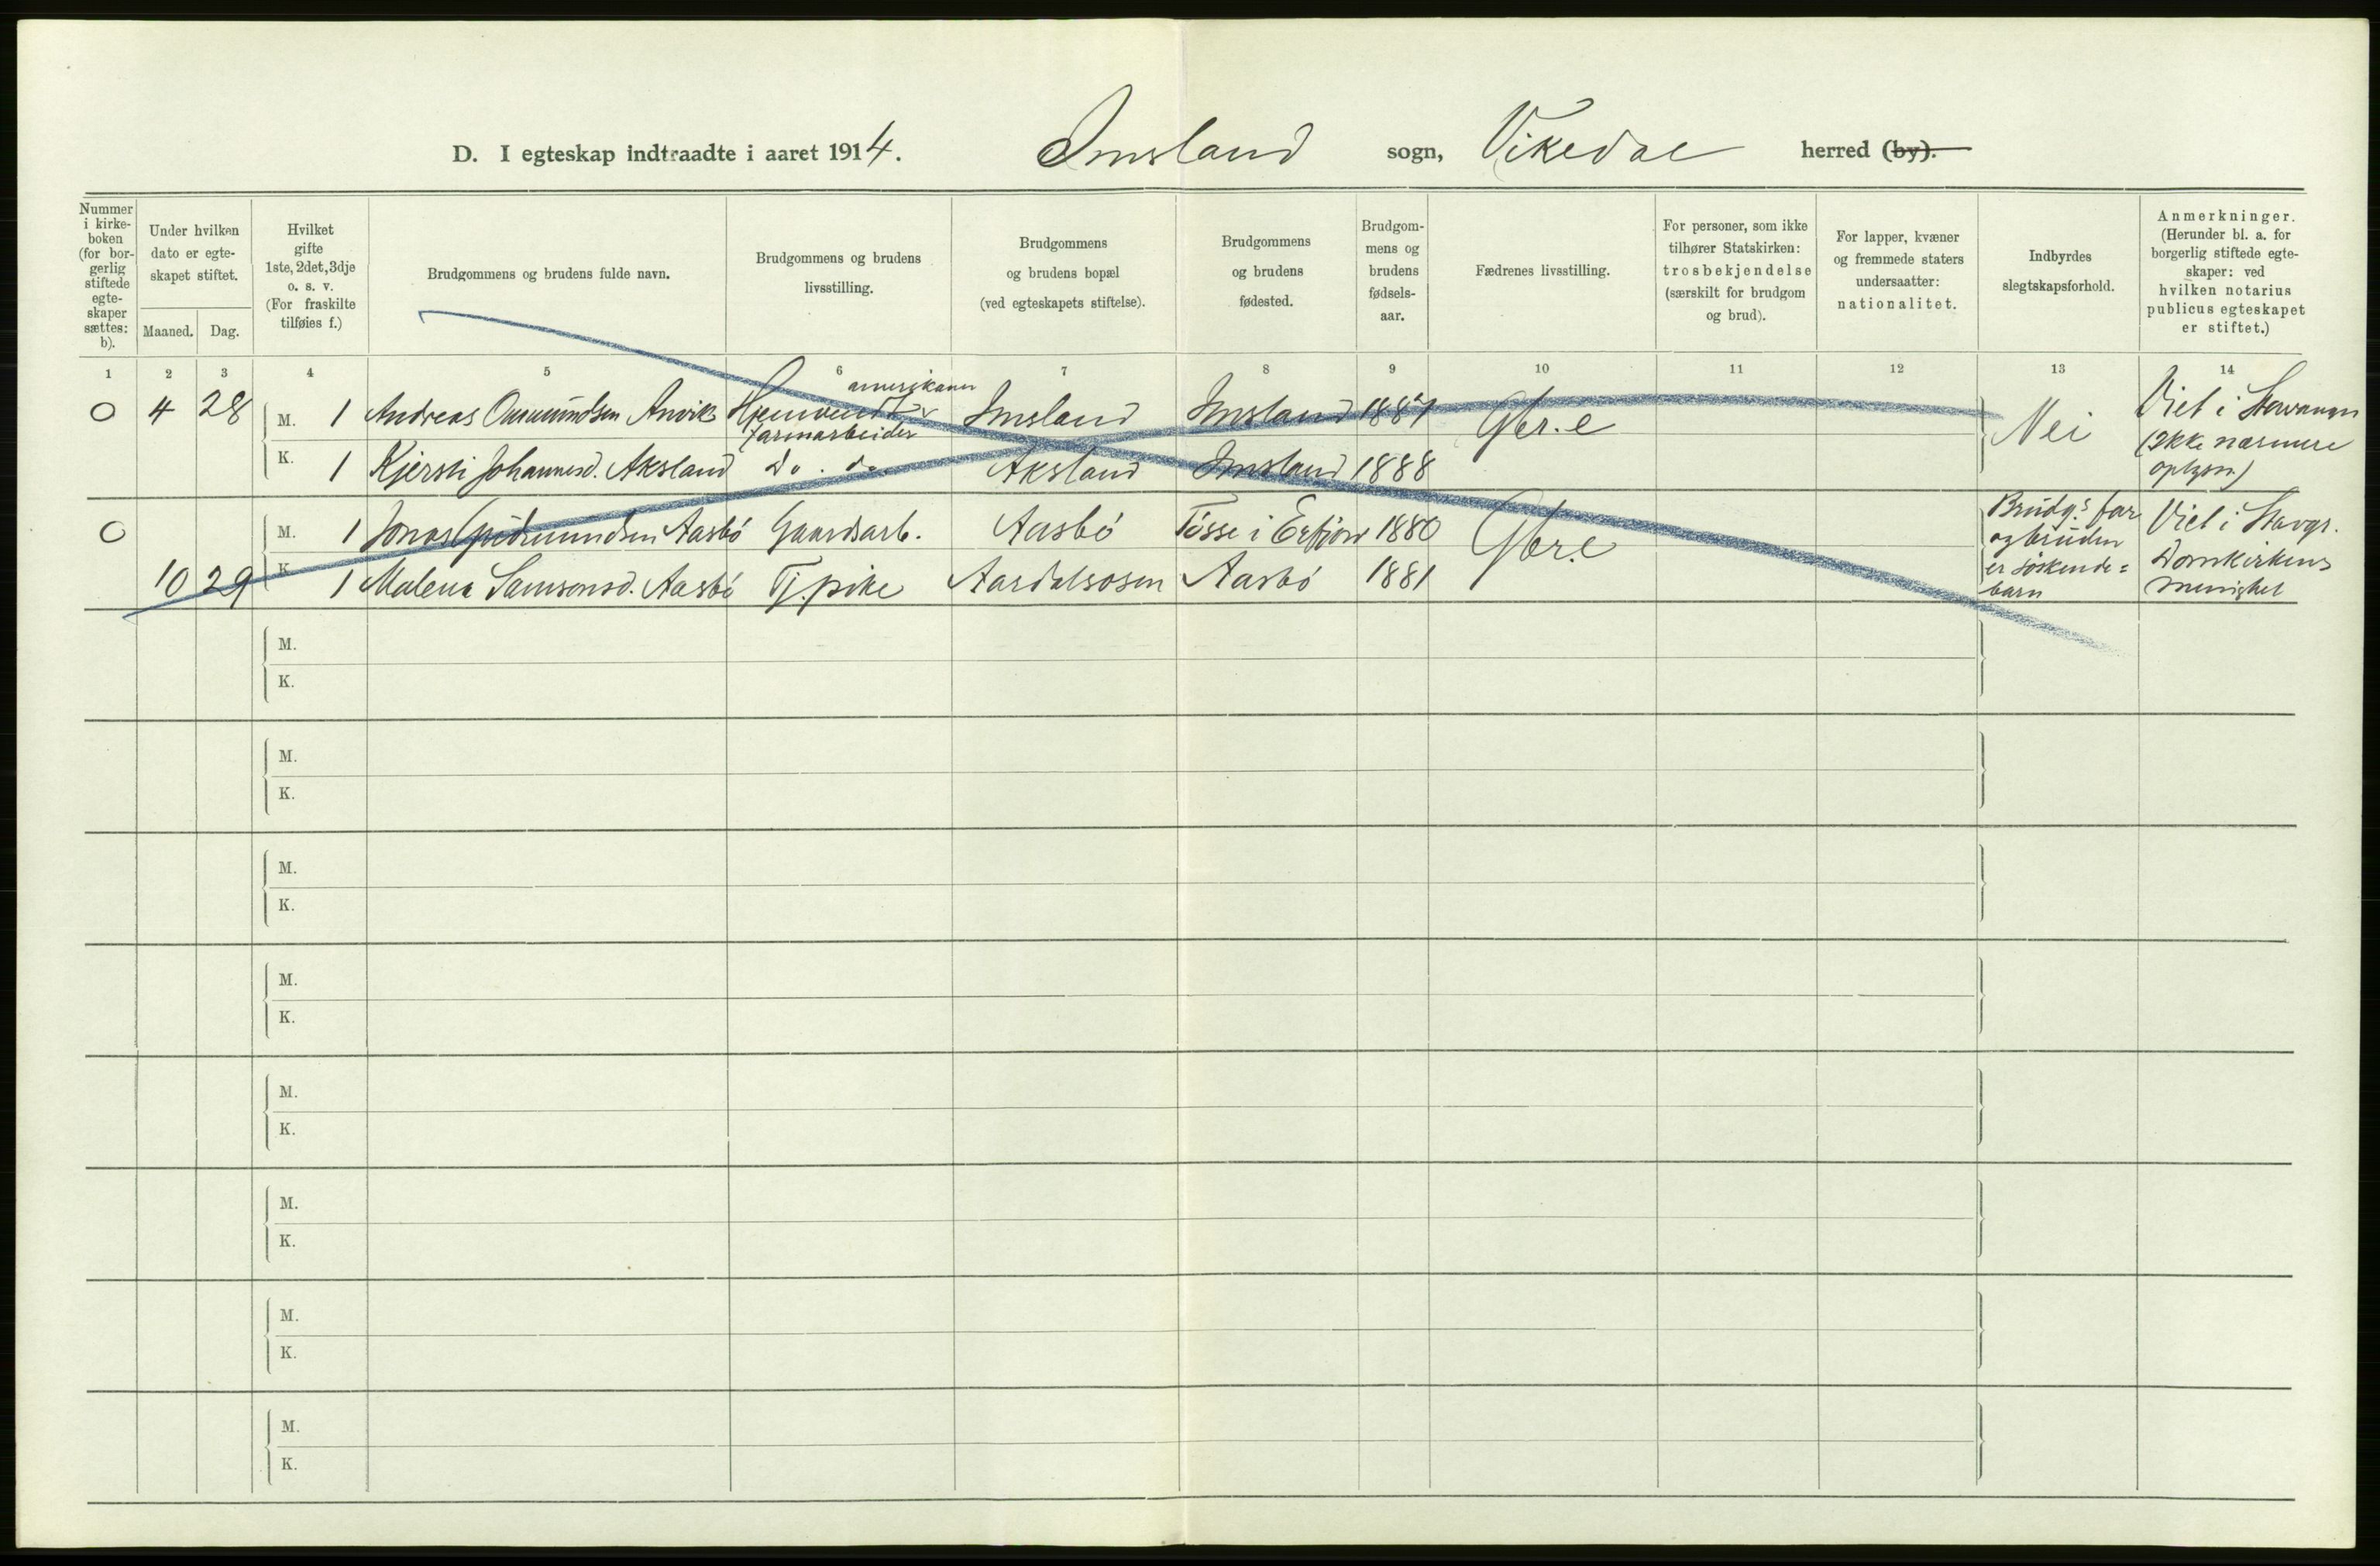 D. I egteskap indtraadte i aaret 1914. Imsland sogn, Vikedal herred (by).
Nummer i kirke-boken (for bor-gerlig stiftede egte-skaper sættes: b).
Under hvilken dato er egte-skapet stiftet.
Maaned. Dag.
Hvilket gifte 1ste, 2det, 3dje o. s. v. (For fraskilte tilføies f.)
Brudgommens og brudens fulde navn.
Brudgommens og brudens livsstilling.
Brudgommens og brudens bopæl (ved egteskapets stiftelse).
Brudgommens og brudens fødested.
Brudgom-mens og brudens fødsels-aar.
Fædrenes livsstilling.
For personer, som ikke tilhører Statskirken: trosbekjendelse (særskilt for brudgom og brud).
For lapper, kvæner og fremmede staters undersaatter: nationalitet.
Indbyrdes slegtskapsforhold.
Anmerkninger. (Herunder bl. a. for borgerlig stiftede egte-skaper: ved hvilken notarius publicus egteskapet er stiftet.)
1 2 3 4 5 6 7 8 9 10 11 12 13 14
0 4 28 M. 1 Andreas Ommundsen Anvik Hjemvendt amerikaner farmarbeider Imsland Imsland 1887 Gbr.e Nei Viet i Stavanger (Ikke nærmere oplysn)
K. 1 Kjersti Johannesd. Aksland Do. do. Aksland Imsland 1888
0 M. 1 Jonas Gudmundsen Aasbö Gaardsarb. Aasbö Tösse i Erfjord 1880 Gbr.e Brudg.s far og bruden er söskende=barn Viet i Stavgr. Domkirkens menighet
10 29 K. 1 Malena Samsonsd. Aasbö Tj.pike Aardalsosen Aasbö 1881
M.
K.
M.
K.
M.
K.
M.
K.
M.
K.
M.
K.
M.
K.
M.
K.